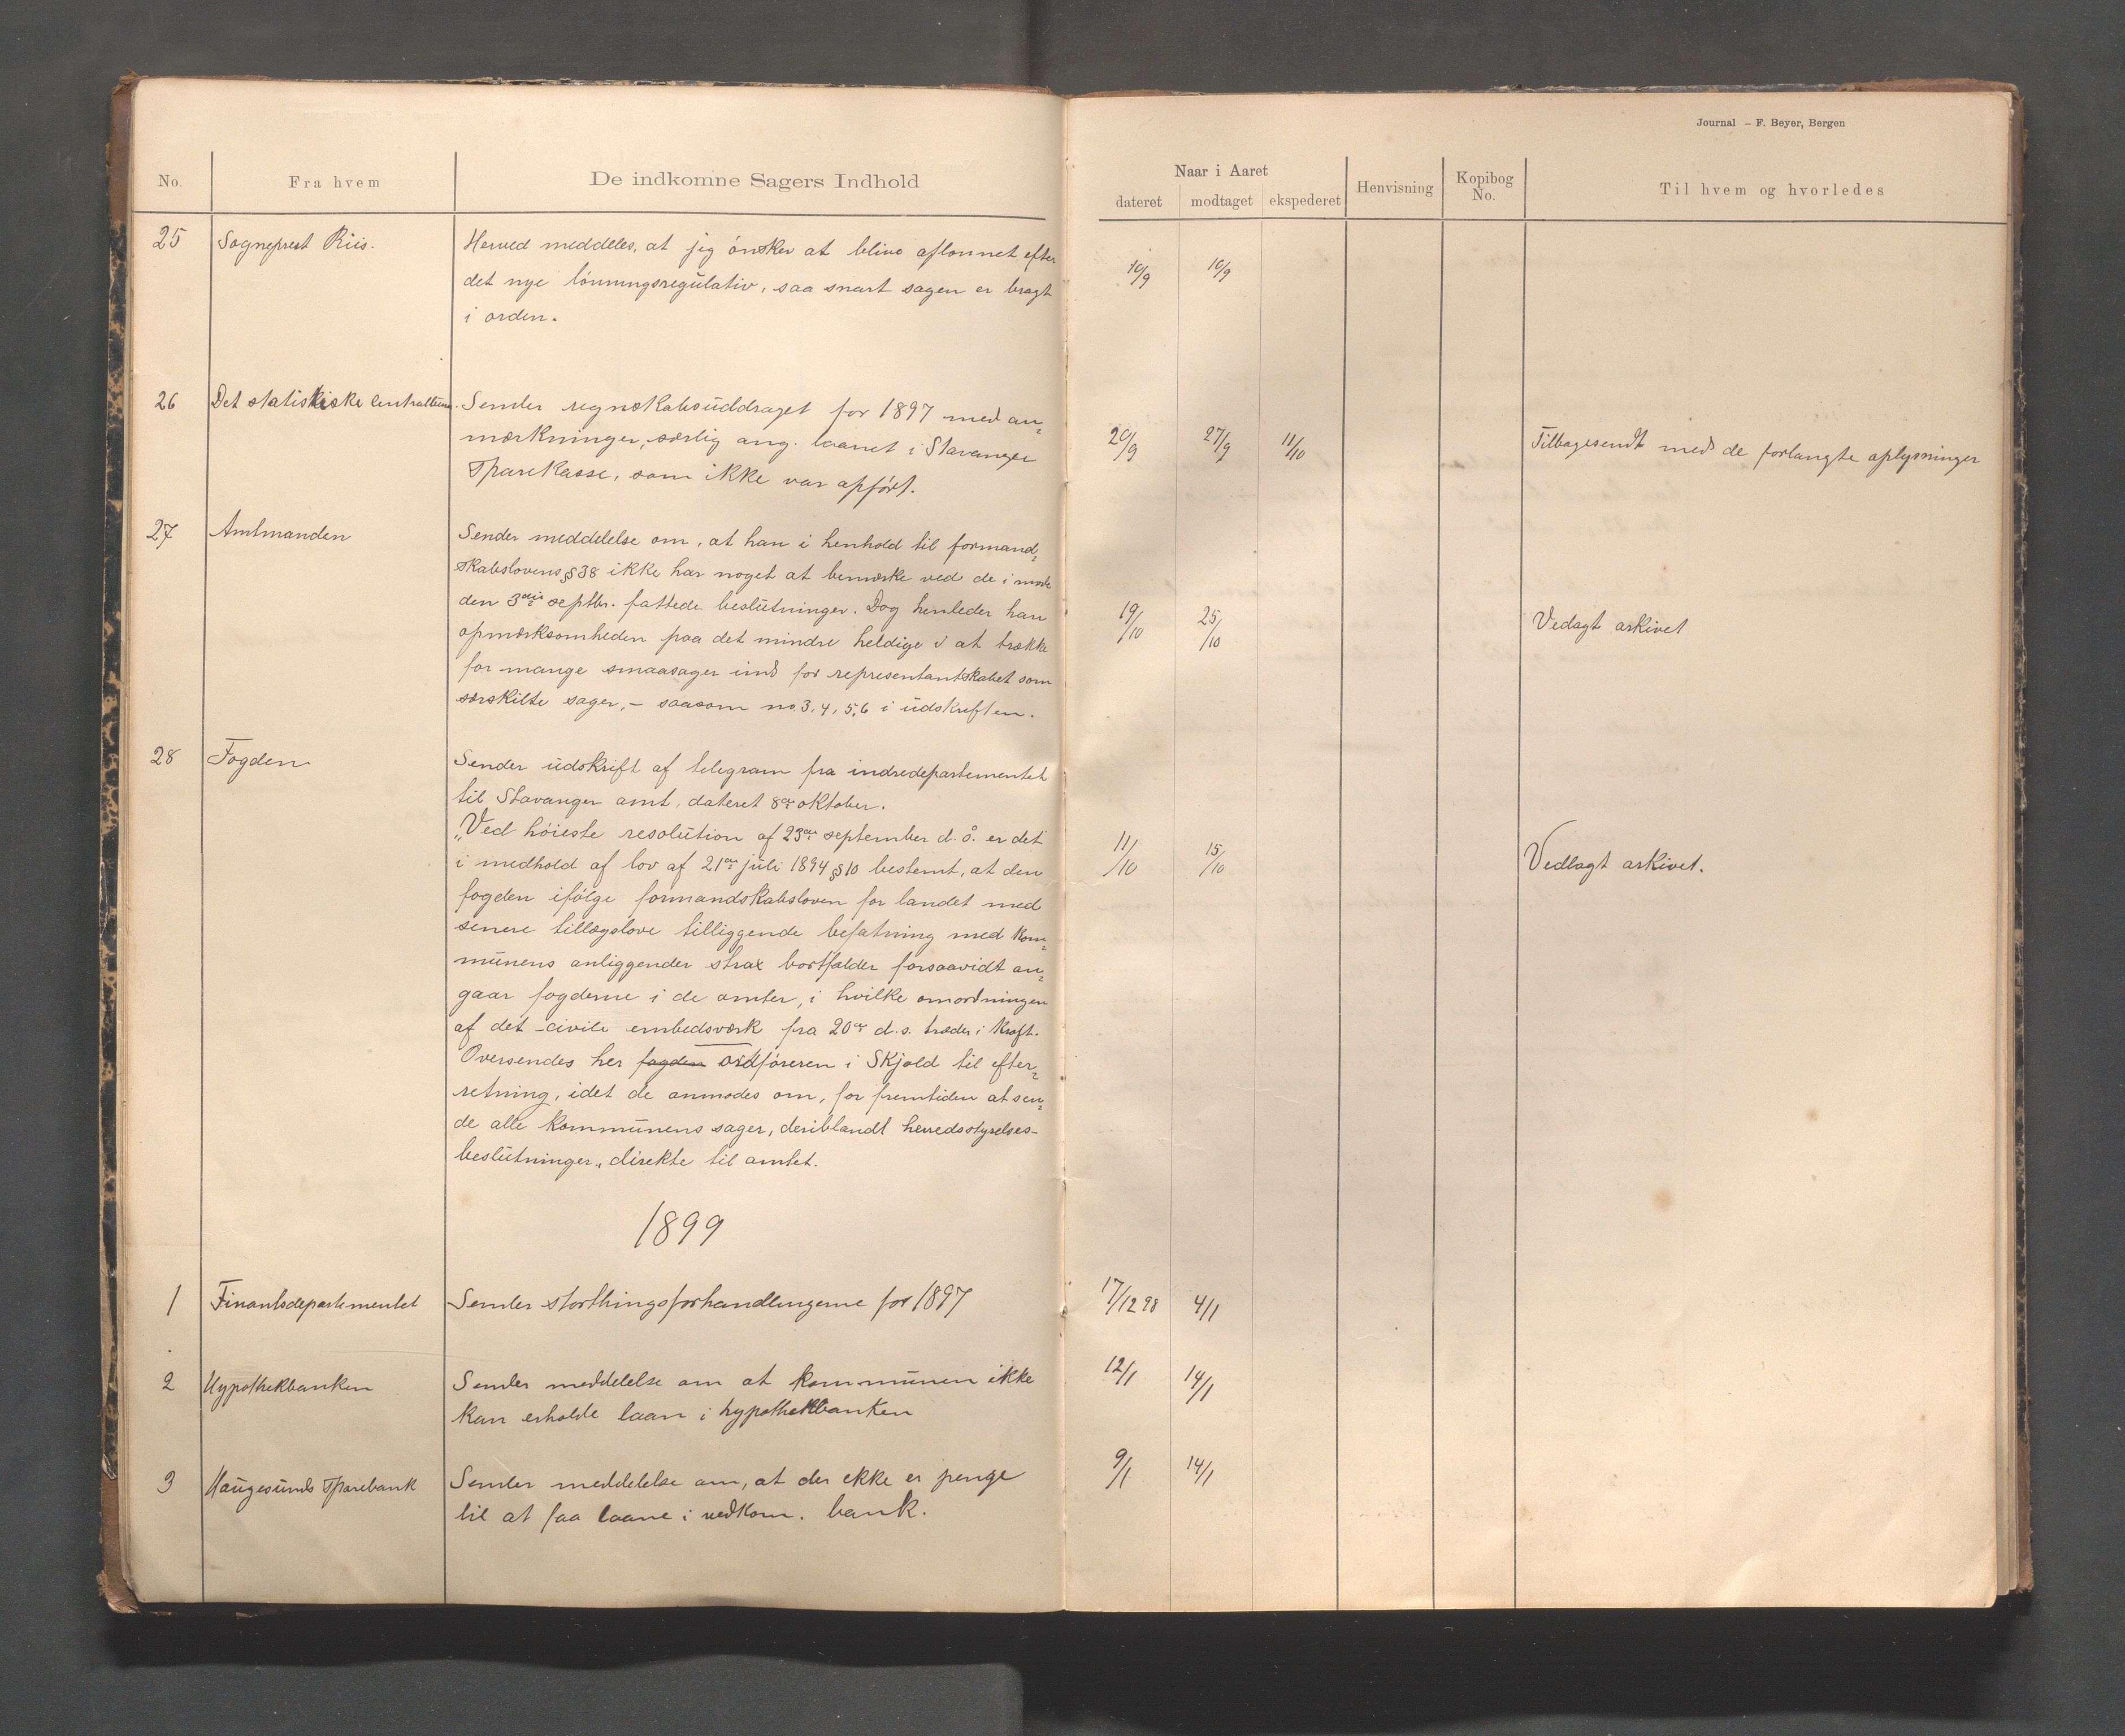 Journal – F. Beyer, Bergen
No. Fra hvem De indkomne Sagers Indhold Naar i Aaret dateret modtaget ekspederet Henvisning Kopibog No. Til hvem og hvorledes
25 Sogneprest Riis. Herved meddeles, at jeg ønsker at blive aflønnet efter 10/9 10/9
det nye lønningsregulativ, saa snart sagen er bragt
i orden.
26 Det statistiske Centralbur. Sender regnskabsuddraget for 1897 med an= 20/9 27/9 11/10 Tilbagesendt med de forlangte oplysninger
mærkninger, særlig ang. laanet i Stavanger
Sparekasse, som ikke var opført.
27 Amtmanden Sender meddelelse om, at han i henhold til formand= 19/10 25/10 Vedagt arkivet
skabslovens § 38 ikke har noget at bemærke ved de i møde
den 3die septbr. fattede beslutninger. Dog henleder han
opmærksomheden paa det mindre heldige i at trække
for mange smaasager ind for representantskabet som
særskilte sager, – saasom no. 3, 4, 5, 6 i udskriften.
28 Fogden Sender udskrift af telegram fra indredepartementet 11/10 15/10 Vedlagt arkivet.
til Stavanger amt, dateret 8de oktober.
„Ved høieste resolution af 23de september d. å. er det
i medhold af lov af 21de juli 1894 § 10 bestemt, at den
fogden ifølge formandskabsloven for landet med
senere tillægslove tilliggende befatning med kom=
munens anliggender strax bortfalder forsaavidt an=
gaar fogderne i de amter, i hvilke omordningen
af det civile embedsværk fra 20de d. s. træder i kraft.
Oversendes her fogden ordføreren i Skjold til efter=
retning, idet de anmodes om, for fremtiden at sen=
de alle kommunens sager, deriblandt herredsstyrelses-
beslutninger, direkte til amtet.
1899
1 Finantsdepartementet Sender storthingsforhandlingerne for 1897 17/12 98 4/1
2 Hypothekbanken Sender meddelelse om at kommunen ikke 12/1 14/1
kan erholde laan i hypothekbanken
3 Haugesunds Sparebank Sender meddelelse om, at der ikke er penge 9/1 14/1
til at faa laane i vedkom. bank.